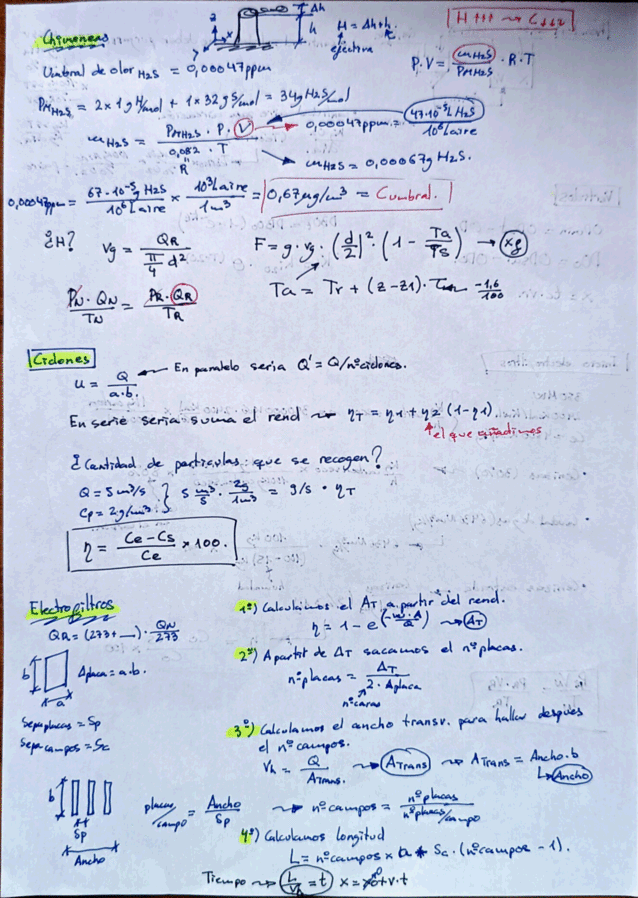 Chimeneas
z
x
y
Δh
h
H = Δh + h.
efectiva
H ↑↑↑ → C ↓↓↓
Umbral de olor H2S = 0,00047 ppm
P·V = mH2S / PMH2S · R·T
PMH2S = 2×1 gH/mol + 1×32 gS/mol = 34 gH2S/mol
mH2S = PMH2S · P · V / 0,082 · T
R
0,00047 ppm = 47·10⁻⁵ L H2S / 10⁶ L aire
mH2S = 0,00067 g H2S.
0,00047 ppm = 67·10⁻⁵ g H2S / 10⁶ L aire × 10³ L aire / 1 m³ = 0,67 µg/m³ = Cumbral.
¿H? Vg = QR / (π/4 d²)
F = g · vg · (d/2)² · (1 − Ta/Ts) → xg
PN · QN / TN = PR · QR / TR
Ta = Tr + (z − z1) · −1,6/100
Ciclones
u = Q / a·b.
En paralelo seria Q' = Q/nºciclones.
En serie seria suma el rend → ηT = η1 + η2 (1 − η1)
el que añadimos
¿Cantidad de particulas que se recogen?
Q = 5 m³/s
Cp = 2 g/m³
5 m³/s · 2g/1m³ = g/s · ηT
η = Ce − Cs / Ce × 100.
Electrofiltros
QR = (273 + __) · QN/273
b
a
Aplaca = a·b.
Sepa placas = Sp
Sepa campos = Sc
1º) Calculamos el AT a partir del rend.
η = 1 − e^(−w·A/Q) → AT
2º) A partir de AT sacamos el nºplacas.
nºplacas = AT / 2 · Aplaca
nºcaras
3º) Calculamos el ancho transv. para hallar después
el nºcampos.
Vh = Q / ATrans. → ATrans → ATrans = Ancho · b
Ancho
b
Sp
Ancho
placas/campo = Ancho / Sp → nºcampos = nºplacas / nºplacas/campo
4º) Calculamos longitud
L = nºcampos × a + Sc · (nºcampos − 1).
Tiempo → L/Vh = t) x = x0 + v·t